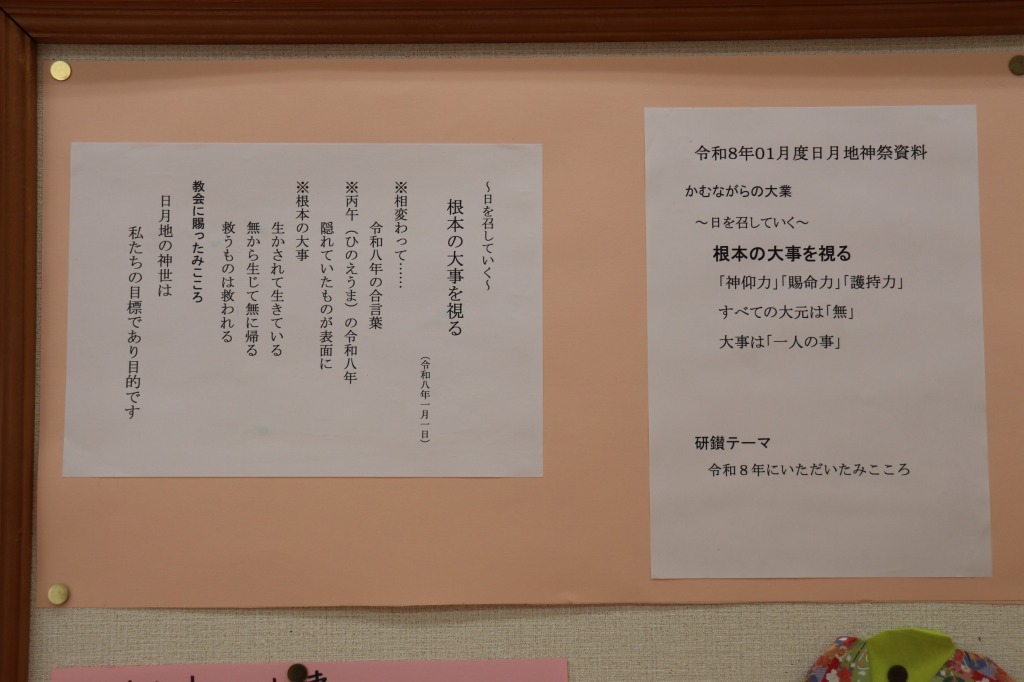 ～日を召していく～
根本の大事を視る
（令和八年一月一日）
※相変わって……
令和八年の合言葉
※丙午（ひのえうま）の令和八年
隠れていたものが表面に
※根本の大事
生かされて生きている
無から生じて無に帰る
救うものは救われる
教会に賜ったみこころ
日月地の神世は
私たちの目標であり目的です
令和8年01月度日月地神祭資料
かむながらの大業
～日を召していく～
根本の大事を視る
「神仰力」「賜命力」「護持力」
すべての大元は「無」
大事は「一人の事」
研鑚テーマ
令和８年にいただいたみこころ